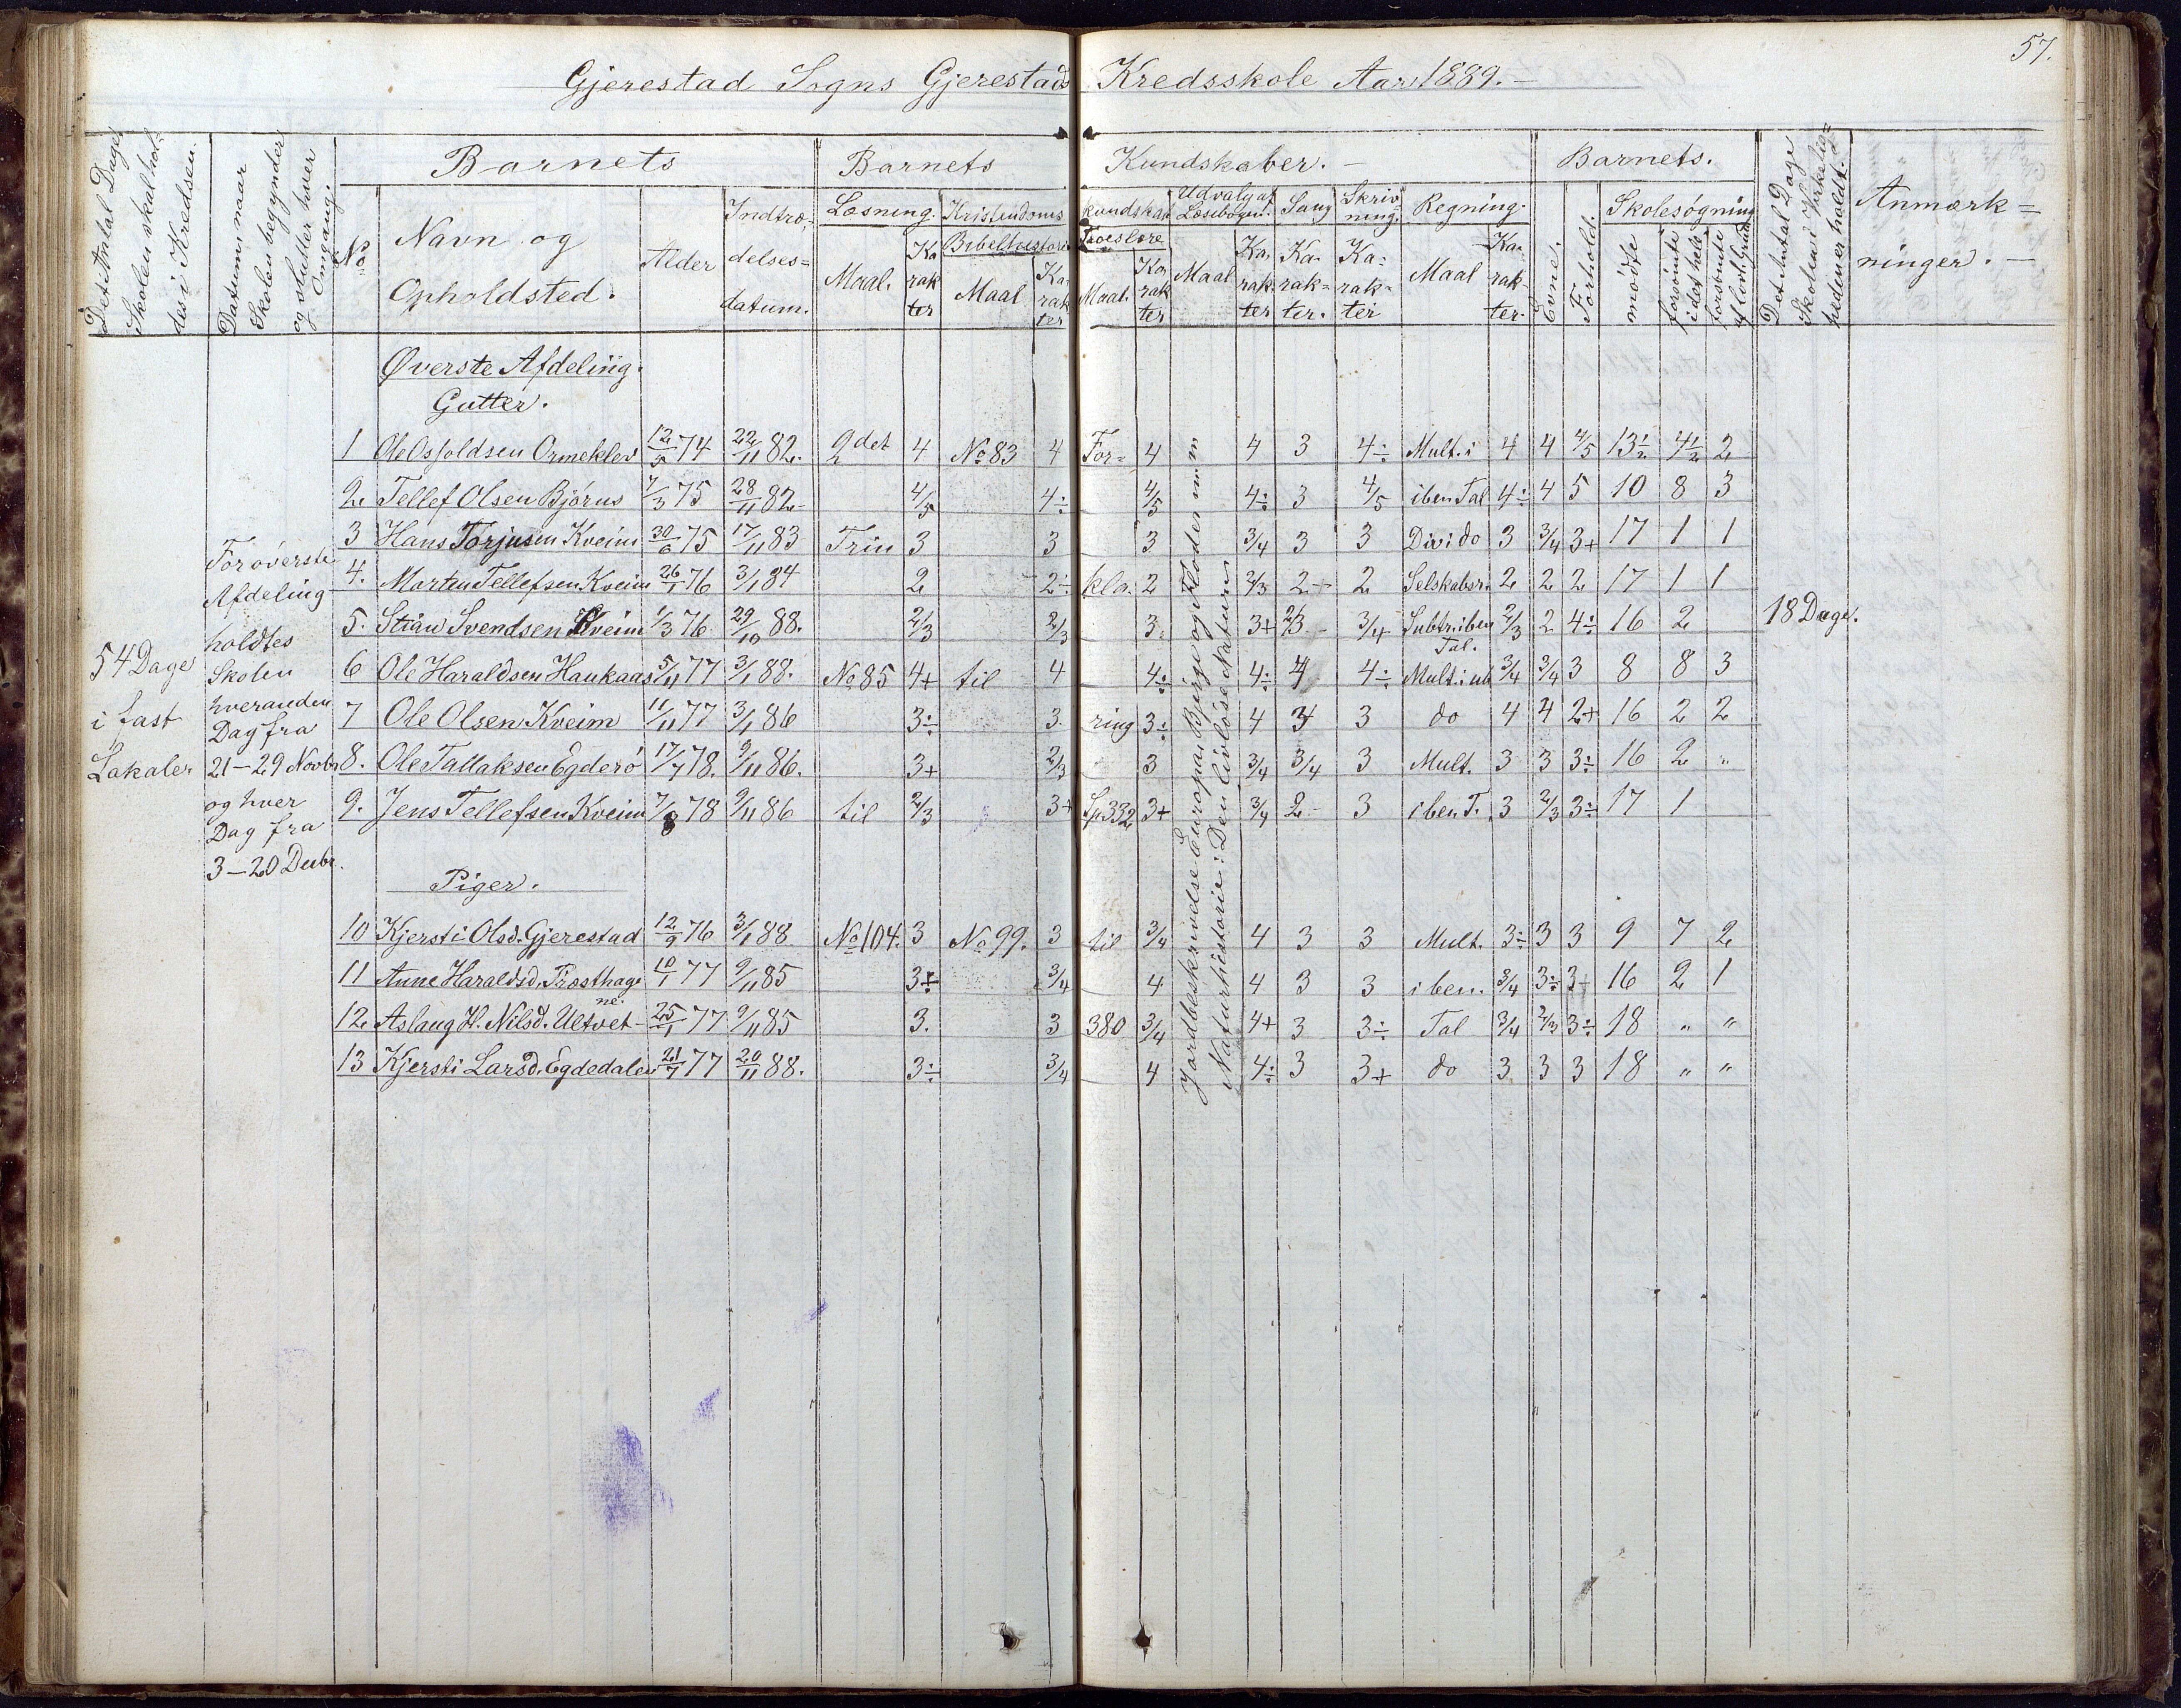 57.
Gjerestad Sogns Gjerestads Kredsskole Aar 1889.
Det Antal Dage Skolen skal holdes i Kredsen.
Datum naar Skolen begynder og slutter hver Omgang.
No
Barnets
Navn og Opholdsted.
Alder
Indtrædelses=datum.
Barnets Kundskaber.
Læsning.
Maal. Karakter
Kristendoms kundskab
Bibelhistorie
Maal Karakter
Troeslære
Maal. Karakter
Udvalg af Læsebogen.
Maal Karakter
Sang
Karakter.
Skrivning.
Karakter
Regning.
Maal Karakter.
Barnets.
Evne.
Forhold.
Skolesøgning
mødte
forsømte i det hele
forsømte af lovl. Grund
Det Antal Dage Skolen i Virkeligheden er holdt.
Anmærkninger.
Øverste Afdeling.
Gutter.
1 Ole Osfoldsen Ormeklev 12/5 74 22/11 82. 2det 4 No 83 4 For= 4 4 3 4÷ Mult. i 4 4 4/5 13½ 4½ 2
2 Tellef Olsen Bjørus 7/3 75 28/11 82 4/5 4÷ 4/5 4÷ 3 4/5 i ben Tal 4÷ 4 5 10 8 3
3 Hans Torjusen Kveim 30/6 75 17/11 83 Trin 3 3 3 3/4 3 3 Div i do 3 3/4 3+ 17 1 1
4. Morten Tellefsen Kveim 26/1 76 3/1 84 2 2÷ kla 2 2/3 2÷ 2 Selskabsr. 2 2 2 17 1 1
5. Stian Svendsen Kveim 1/3 76 29/10 88. 2/3 2/3 3 3+ 2/3 3/4 Subtr. i ben Tal. 2/3 2 4÷ 16 2
6 Ole Haraldsen Haukaas 5/11 77 3/1 88. No 85 4+ til 4 4÷ 4÷ 4 4÷ Mult. i ub 3/4 3/4 3 8 8 3
7 Ole Olsen Kveim 11/11 77 3/1 86 3÷ 3 ring 3÷ 4 3 3 do 4 4 2+ 16 2 2
8. Ole Tallaksen Egderø 17/7 78. 9/11 86. 3+ 2/3 3 3/4 3/4 3 Mult. 3 3 3÷ 16 2 "
9. Jens Tellefsen Kveim 7/8 78 9/11 86 til 2/3 3+ Sp 332 3+ 3/4 2 3 i ben T. 3 2/3 3÷ 17 1
Piger.
10 Kjersti Olsd. Gjerestad 12/9 76 3/1 88 No 104. 3 No 99. 3 til 3/4 4 3 3 Mult. 3÷ 3 3 9 7 2
11 Anne Haraldsd. Træsthagene. 10/1 77 9/11 85 3÷ 3/4 4 4 3 3 i ben. 3/4 3÷ 3+ 16 2 1
12. Aslaug H. Nilsd. Ultvet 25/1 77 9/11 85 3. 3 380 3/4 4+ 3 3÷ Tal 3/4 2/3 3÷ 18 " "
13 Kjersti Larsd. Egdedalen 21/7 77 20/11 88. 3÷ 3/4 4 4÷ 3 3+ do 3 3 3 18 " "
Jordbeskrivelse Europas Bjerge og Floder
Naturhistorie: Den livløse Naturen
54 Dage
i fast
Lokaler
For øverste
Afdeling
holdtes
Skolen
hveranden
Dag fra
21–29 Novbr
og hver
Dag fra
3–20 Decbr.
18 Dage.